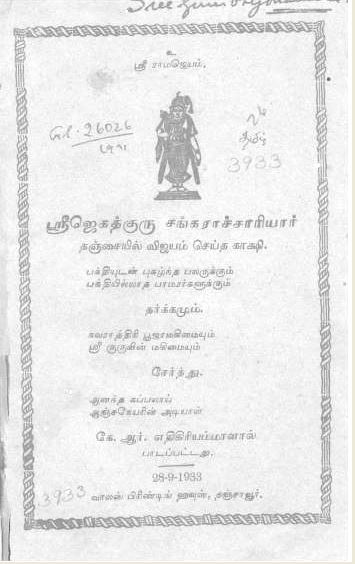 உ
ஸ்ரீ ராமஜெயம்.
26026
தமிழ்
3933
ஸ்ரீஜெகத்குரு சங்கராச்சாரியார்
தஞ்சையில் விஜயம் செய்த காக்ஷி.
பக்தியுடன் புகழ்ந்த பலருக்கும்
பக்தியில்லாத பாமரர்களுக்கும்
தர்க்கமும்.
நவராத்திரி பூஜாமகிமையும்
ஸ்ரீ குருவின் மகிமையும்
சேர்த்து.
ஆனந்த கப்பலாய்
ஆஞ்சநேயரின் அடியாள்
கே. ஆர். எதிகிரியம்மாளால்
பாடப்பட்டது.
28-9-1933
3933
வாலன் பிரிண்டிங் ஹவுஸ், தஞ்சாவூர்.